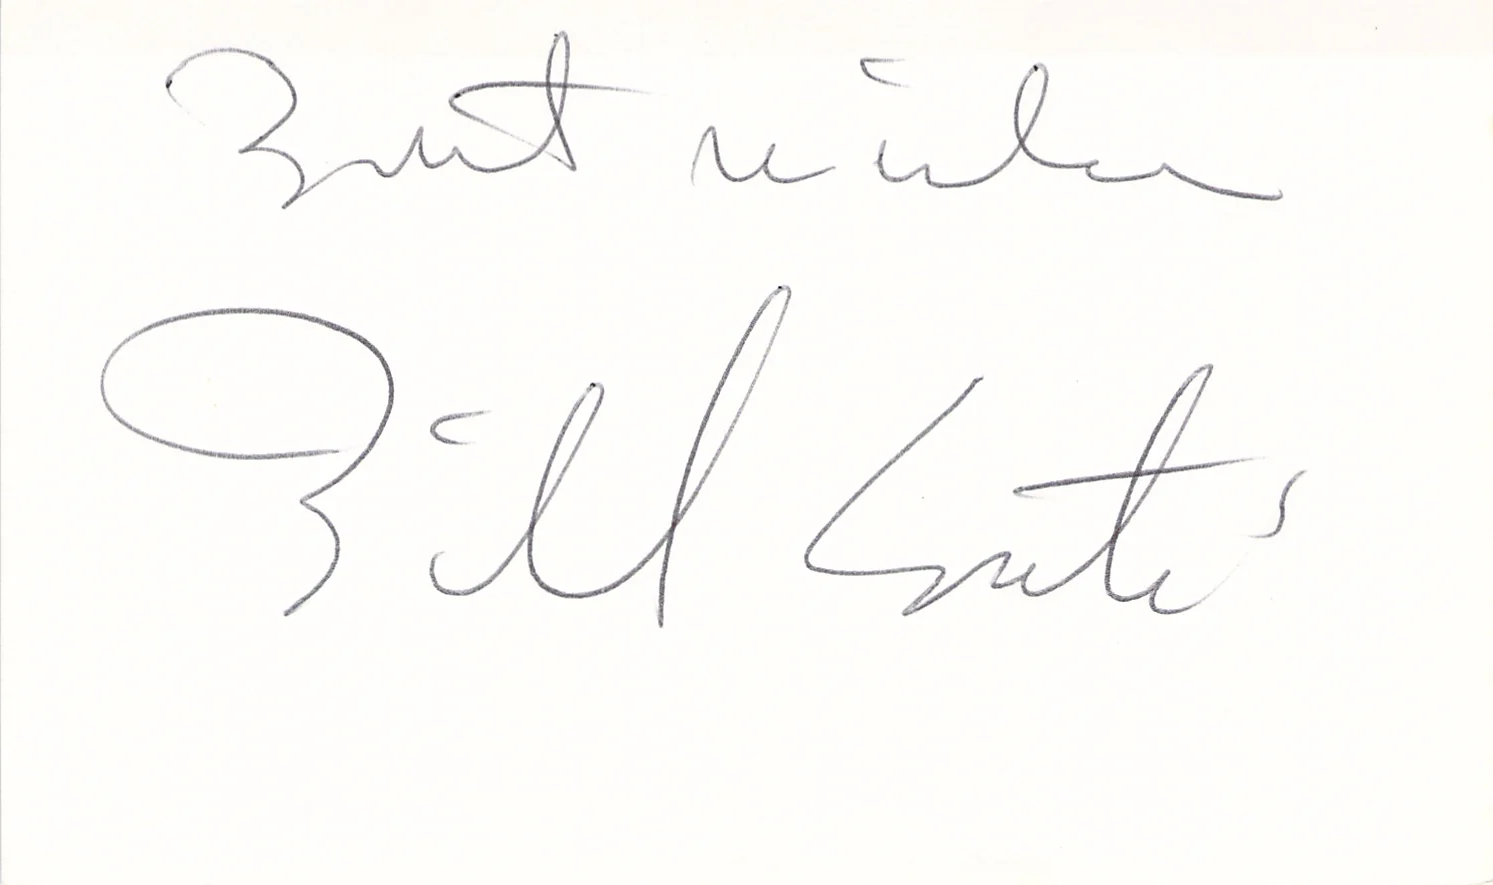 Best wishes
Bill Gates